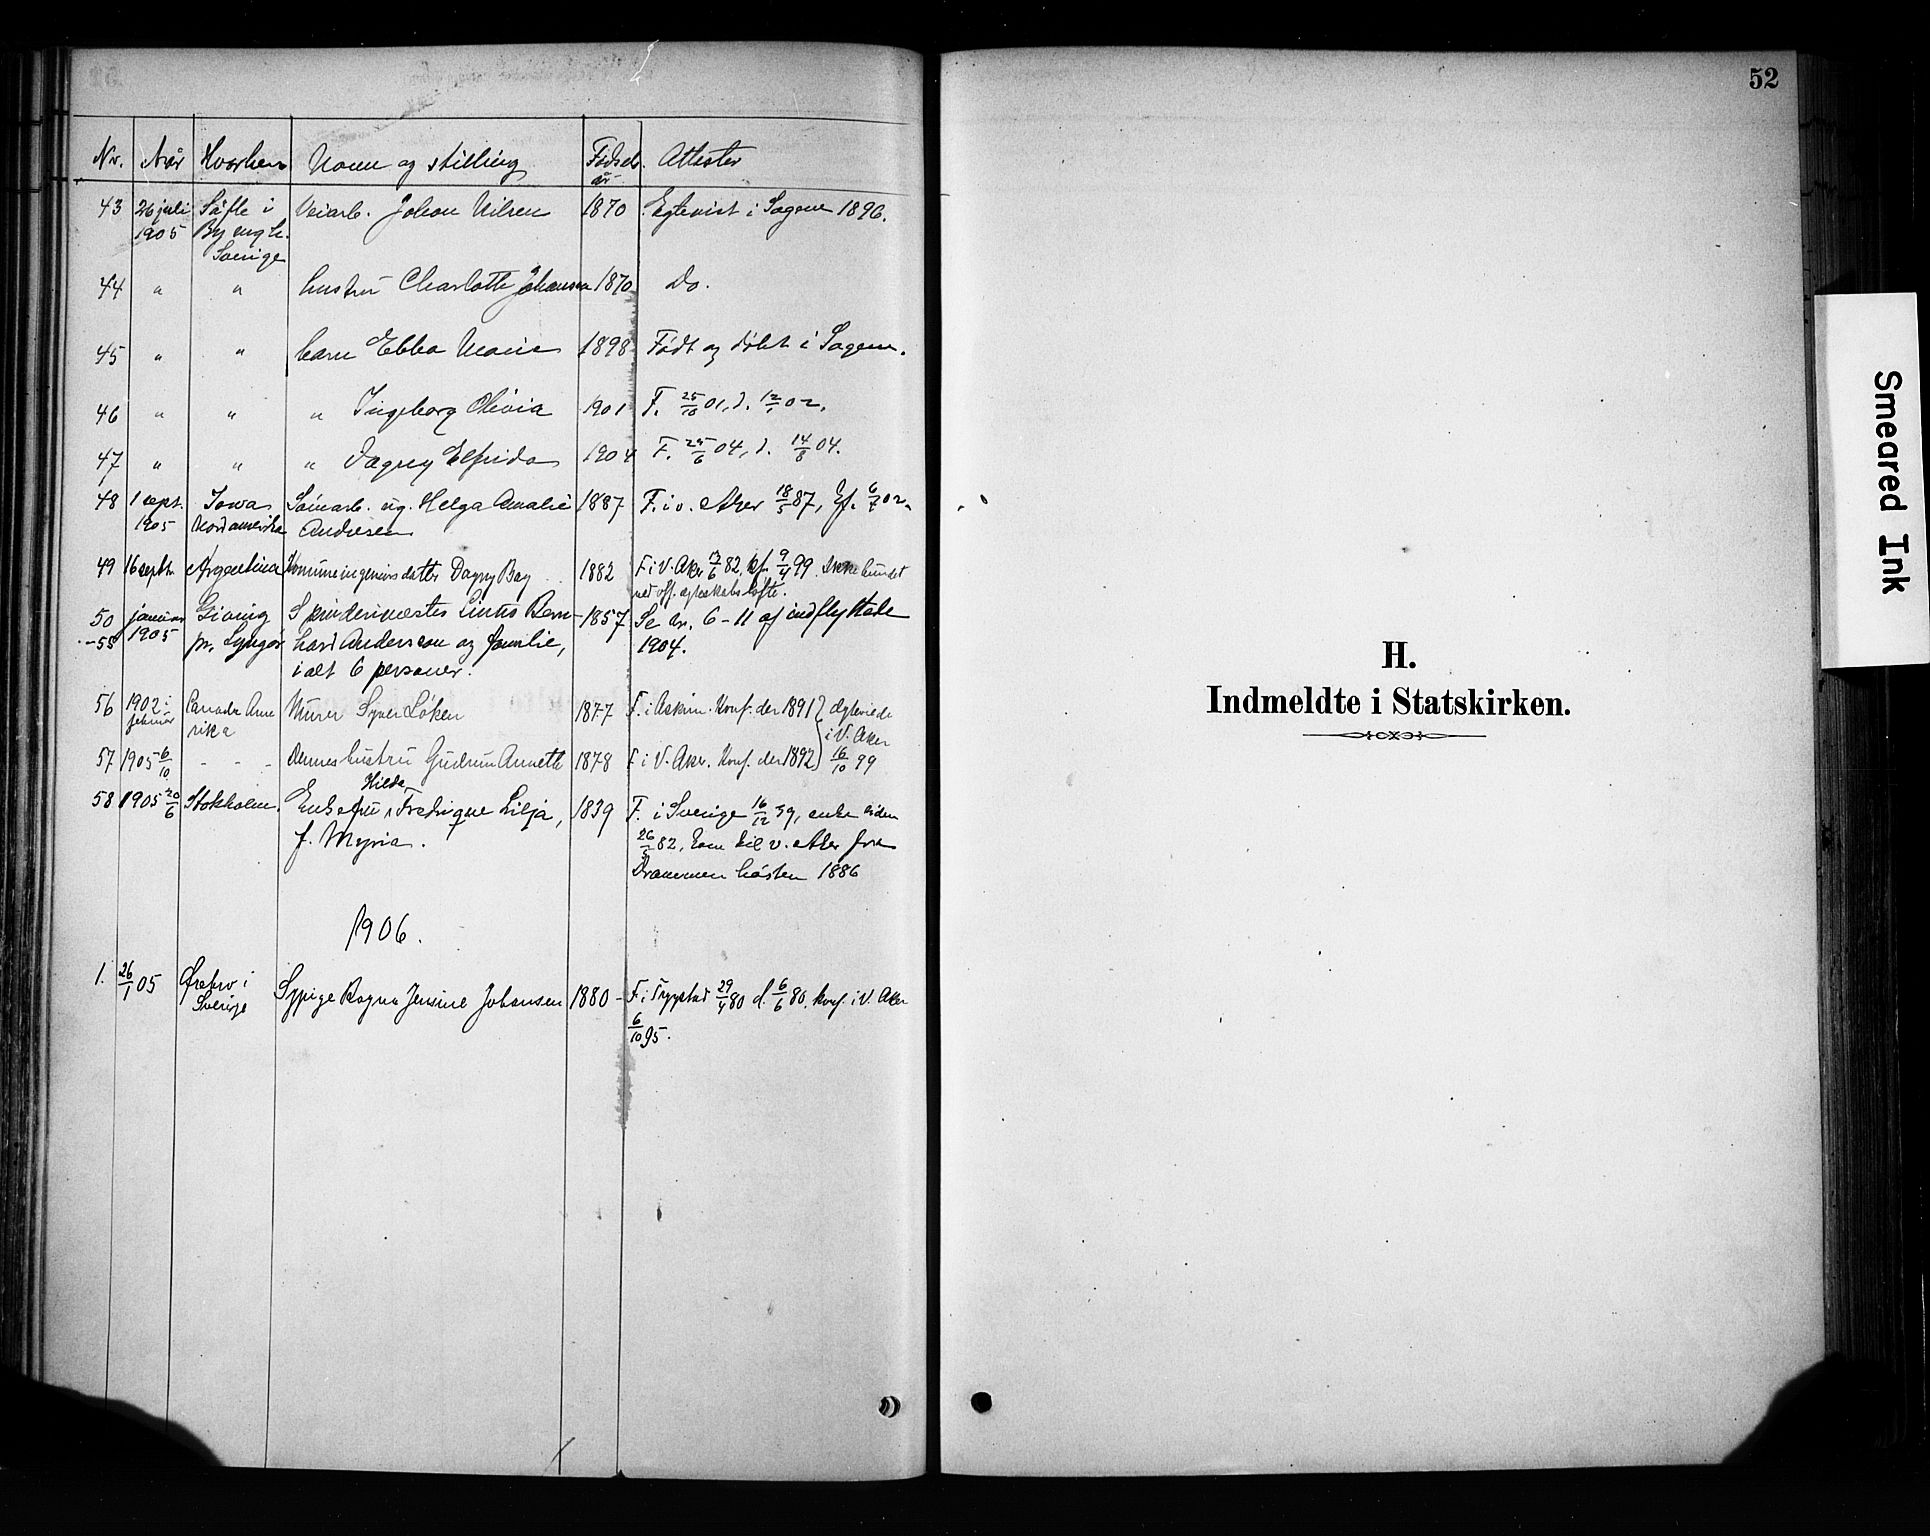 Nr. Naar Hvorhen Navn og stilling Fødsels år Attester
43 26 juli 1905 Säfle i By Sverige Veiarb. Johan Nilsen 1870 Egteviet i Sagene 1896.
44 " " hustru Charlotte Johansen 1870 Do.
45 " " barn Ebba Marie 1898 Født og døbt i Sagene.
46 " " " Ingeborg Olivia 1901 F. 25/10 01, d. 12/1 02.
47 " " " Dagny Elfrida 1904 F. 25/6 04, d. 14/8 04.
48 1 sept. 1905 Iowa Nordamerika Sömarb. ug. Helga Amalie 1887 F. i v. Aker 18/5 87, kf. 6/7 02.
Andresen
49 16 sept. Argentina Kommuneingeniørs datter Dagny Bay 1882 F i V. Aker 13/6 82, kf. 9/4 99. Ikke bundet
ved off. egteskabsløfte.
50 januar Gieving Spindemester Linus Bern- 1857 Se nr. 6-11 af indflyttede
-55 1905 pr. Lyngør hard Anderson og familie, 1904.
i alt 6 personer.
56 1902 februar Canada Amerika Murer Syver Løken 1877 F. i Askim. Konf. der 1891 Ægteviede
i V. Aker
57 1905 6/10 - - - Dennes hustru Gudrun Annette 1878 F i V. Aker. Konf. der 1892 16/10 99
58 1905 20/6 Stokholm. Enkefru Hilda Fredrique Lilja, 1839 F. i Sverige 16/12 39, enke siden
f. Myria. 26/5 82, kom til v. Aker fra
Drammen høsten 1886
1906.
1. 26/1 05 Ørebro i Sverige Sypige Ragna Jensine Johansen 1880 - F. i Trygstad 29/4 80 d. 6/6 80. konf. i V. Aker
6/10 95.
52
H.
Indmeldte i Statskirken.
Smeared Ink